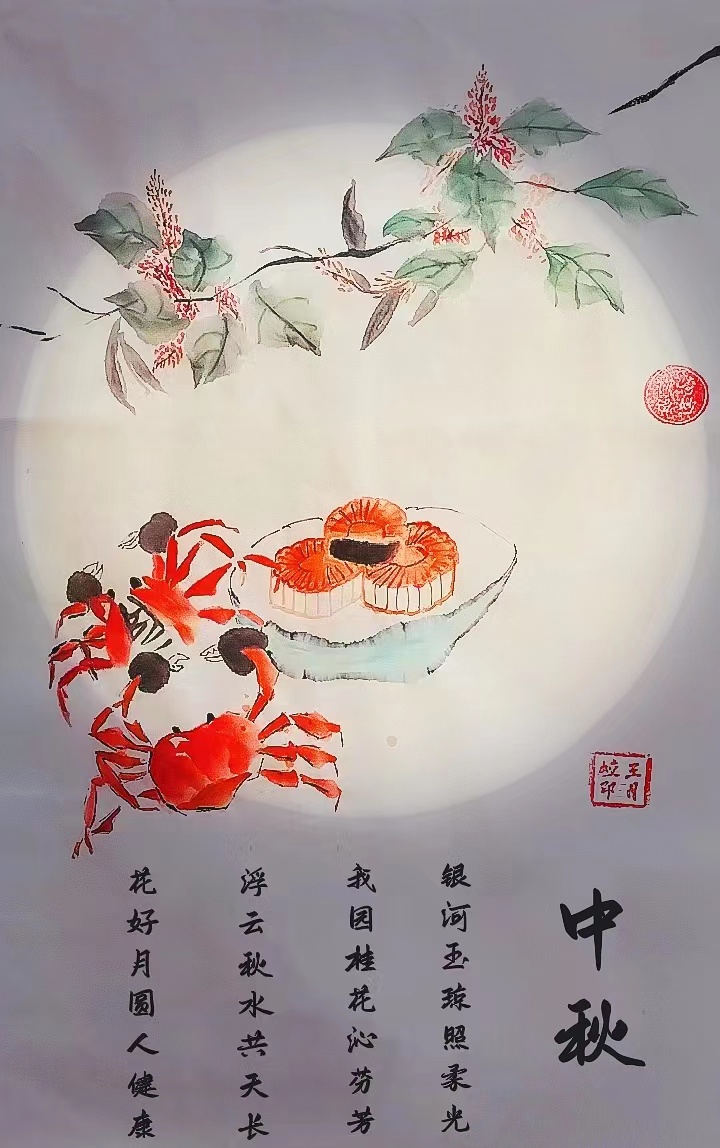 中秋
银河玉琼照柔光
我园桂花沁芬芳
浮云秋水共天长
花好月圆人健康